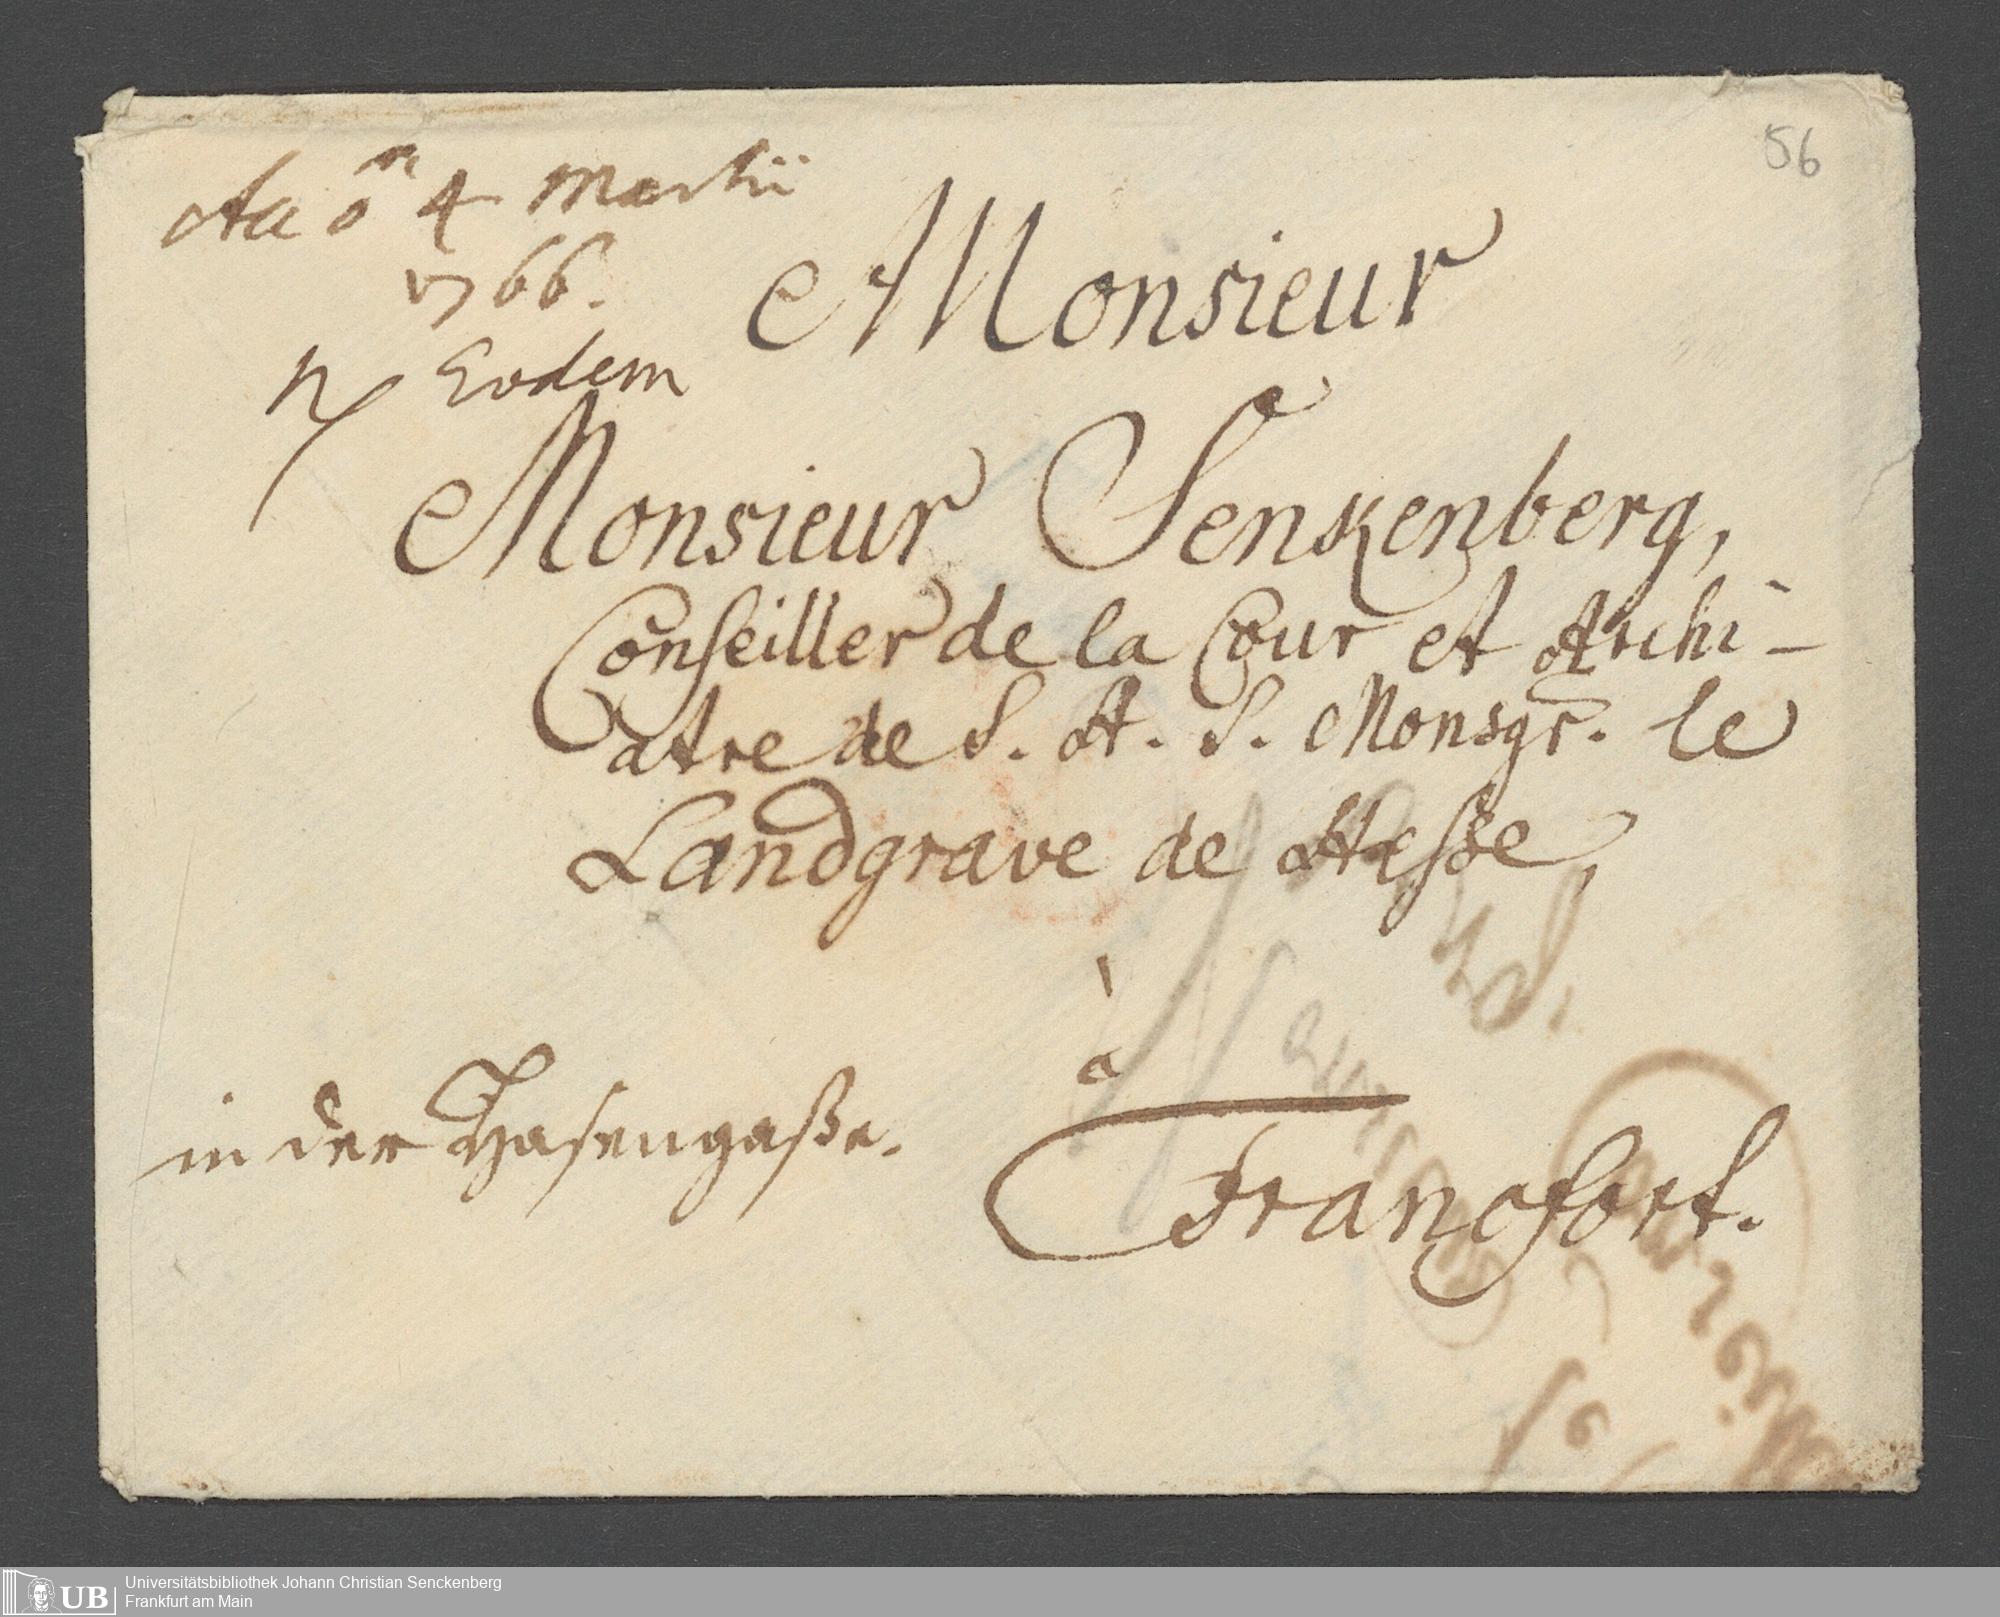 56
4 Martii
1766.
Eodem
Monsieur
Monsieur Senkenberg,
Conseiller de la Cour et Archi-
atre de S. H. S. Monsgr. le
Landgrave de Hesse,
à
in der Hasengaße.
Francfort.
UB
Universitätsbibliothek Johann Christian Senckenberg
Frankfurt am Main